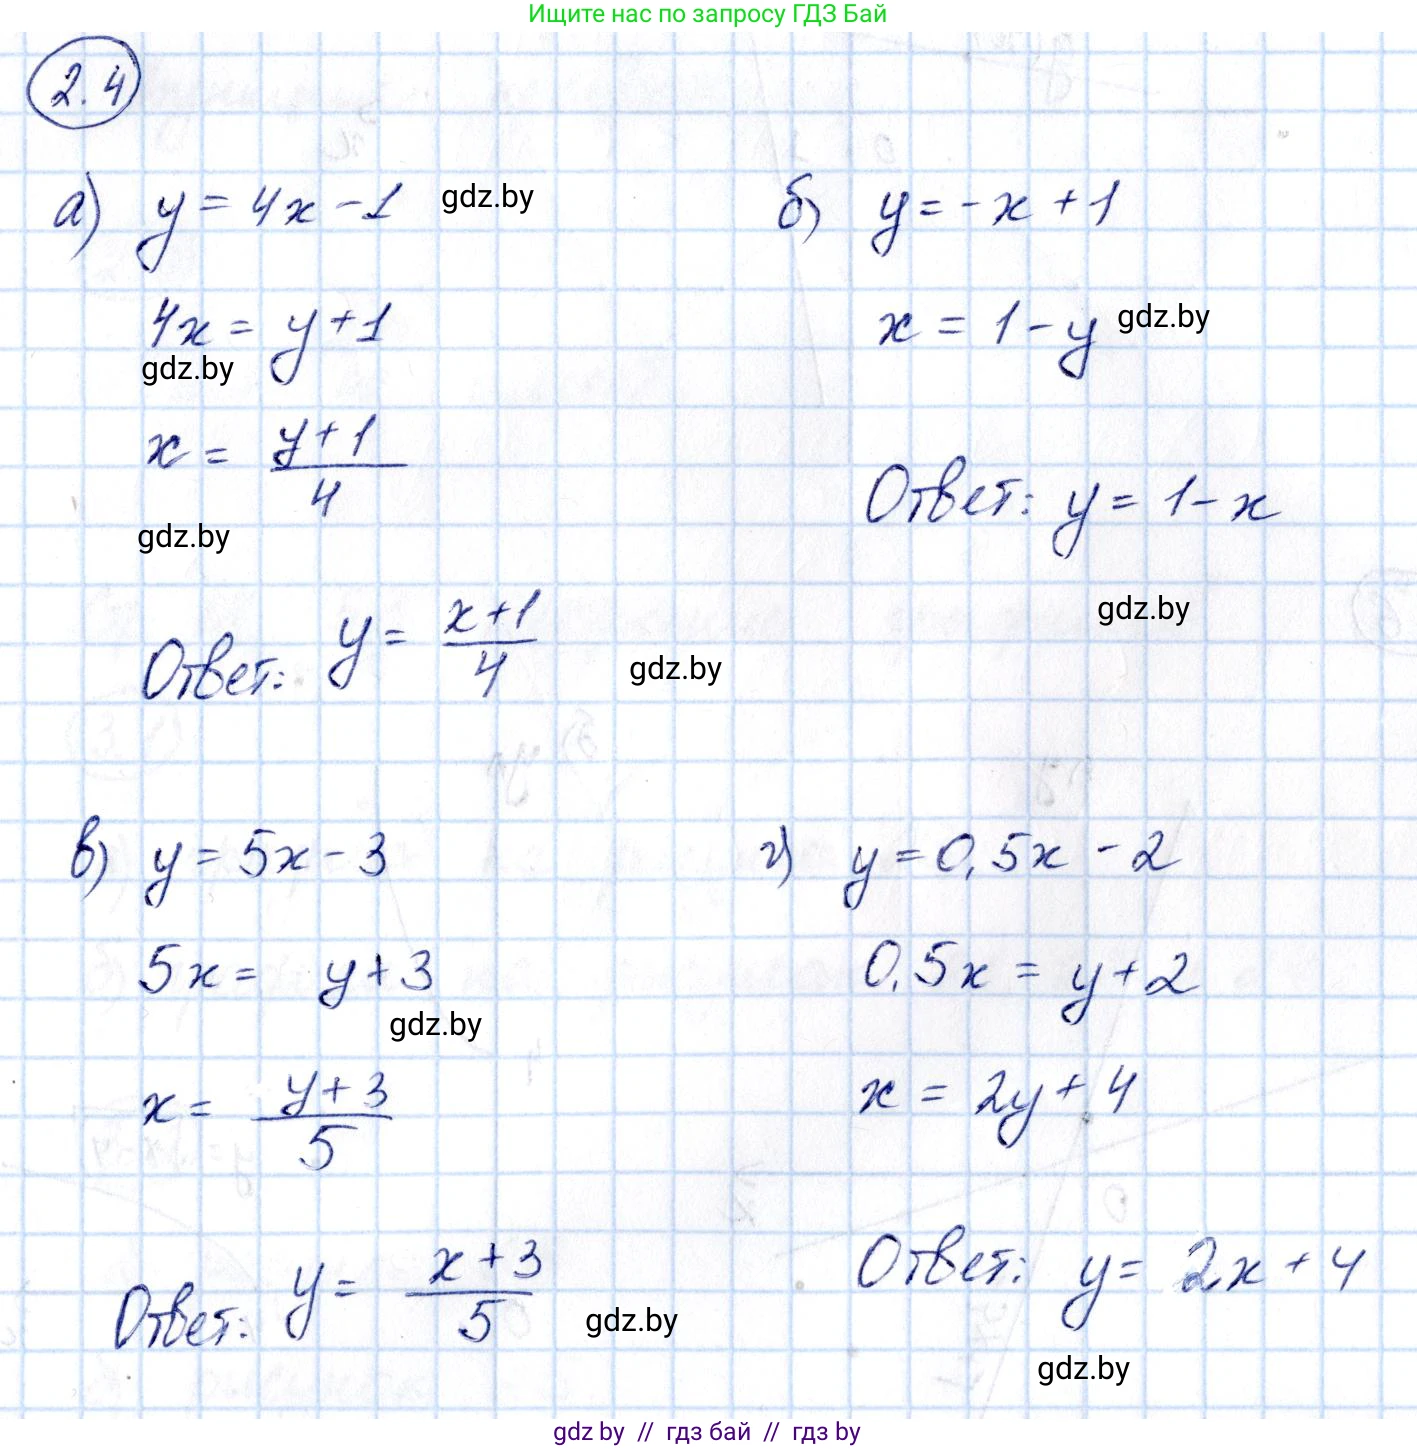 Ищите нас по запросу ГДЗ Бай
2.4
а) y = 4x - 1 gdz.by
4x = y + 1
gdz.by
x = (y + 1)/4
gdz.by
Ответ: y = (x + 1)/4 gdz.by
б) y = -x + 1
x = 1 - y gdz.by
Ответ: y = 1 - x
gdz.by
в) y = 5x - 3
5x = y + 3
gdz.by
x = (y + 3)/5
Ответ: y = (x + 3)/5 gdz.by
г) y = 0,5x - 2
0,5x = y + 2
x = 2y + 4
Ответ: y = 2x + 4
gdz.by
gdz by // гдз бай // гдз by